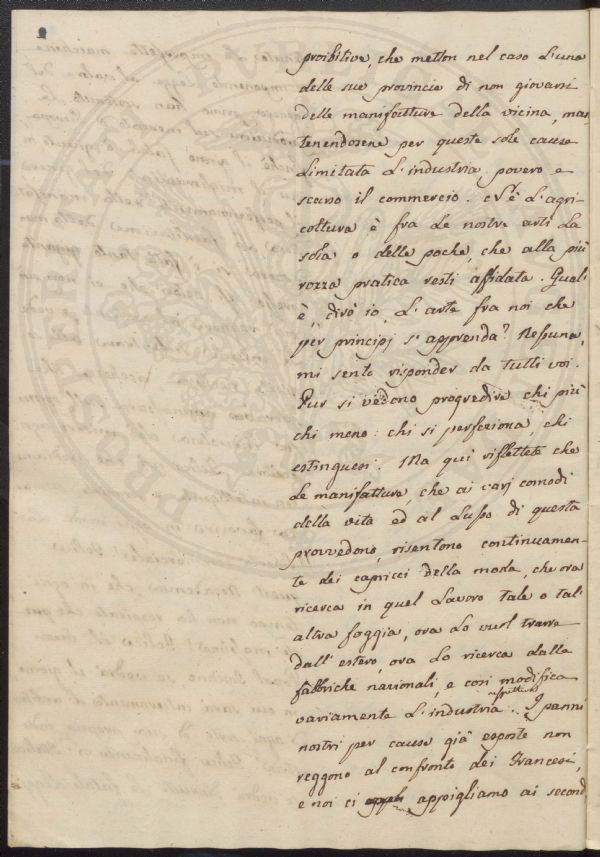 proibitive, che metton nel caso l'una
delle sue provincie di non giovarsi
delle manifatture della vicina, man
tenendosene per queste sole cause
limitata l'industria, povero e
scarso il commercio. Nè l'agri-
coltura è fra le nostre arti la
sola o delle poche, che alla più
rozza pratica resti affidata. Qual'
è, dirò io, l'arte fra noi che
per principj s'apprenda? Nessuna,
mi sento risponder da tutti voi.
Pur si vedono progredire chi più
chi meno: chi si perfeziona, chi
estinguesi. Ma qui riflettete che
le manifatture, che ai varj comodi
della vita ed al lusso di questa
provvedono, risentono continuamen-
te dei capricci della moda, che ora
ricerca in quel lavoro tale o tal'
altra foggia, ora lo vuol trarre
dall'estero, ora lo ricerca dalle
fabbriche nazionali, e così modifica
variamente l'industria. I panni
nostri per cause già esposte non
reggono al confronto dei Francesi,
e noi ci appigliamo ai second